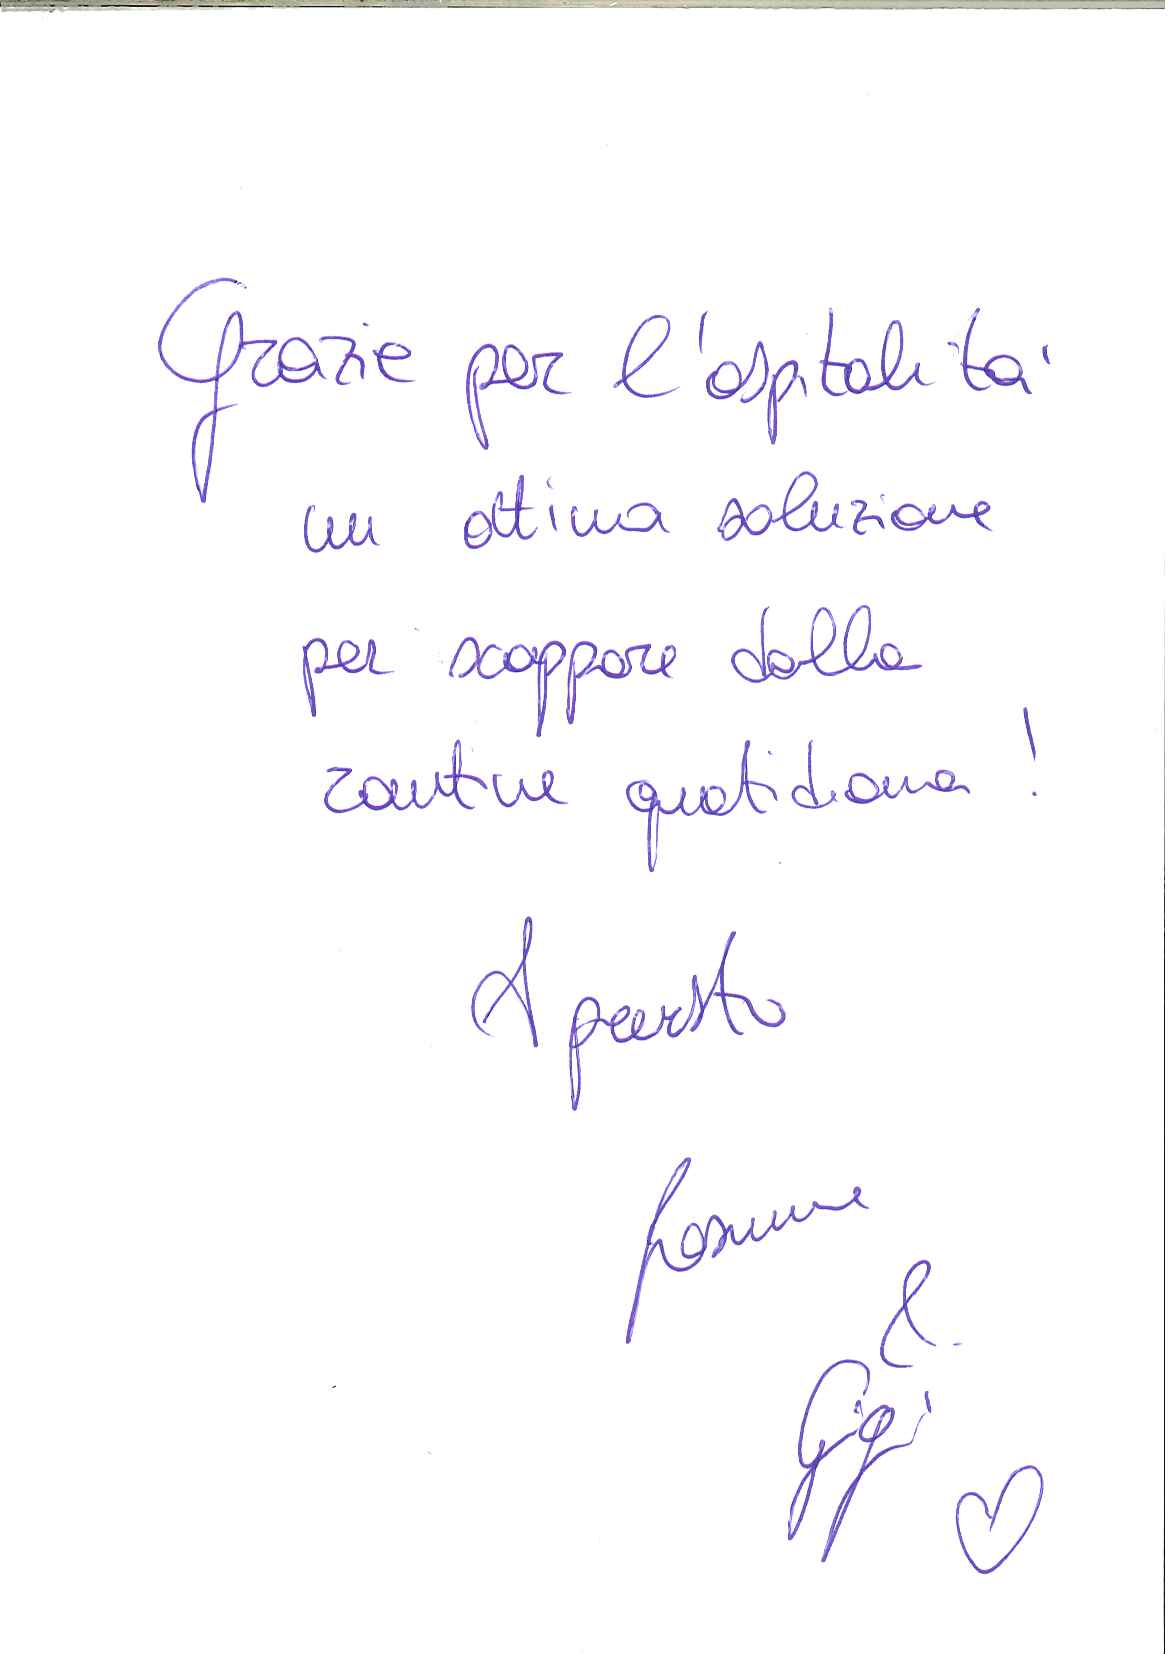 Grazie per l'ospitalita'
un ottima soluzione
per scappare dalla
routine quotidiana!
A presto
&
Gigi